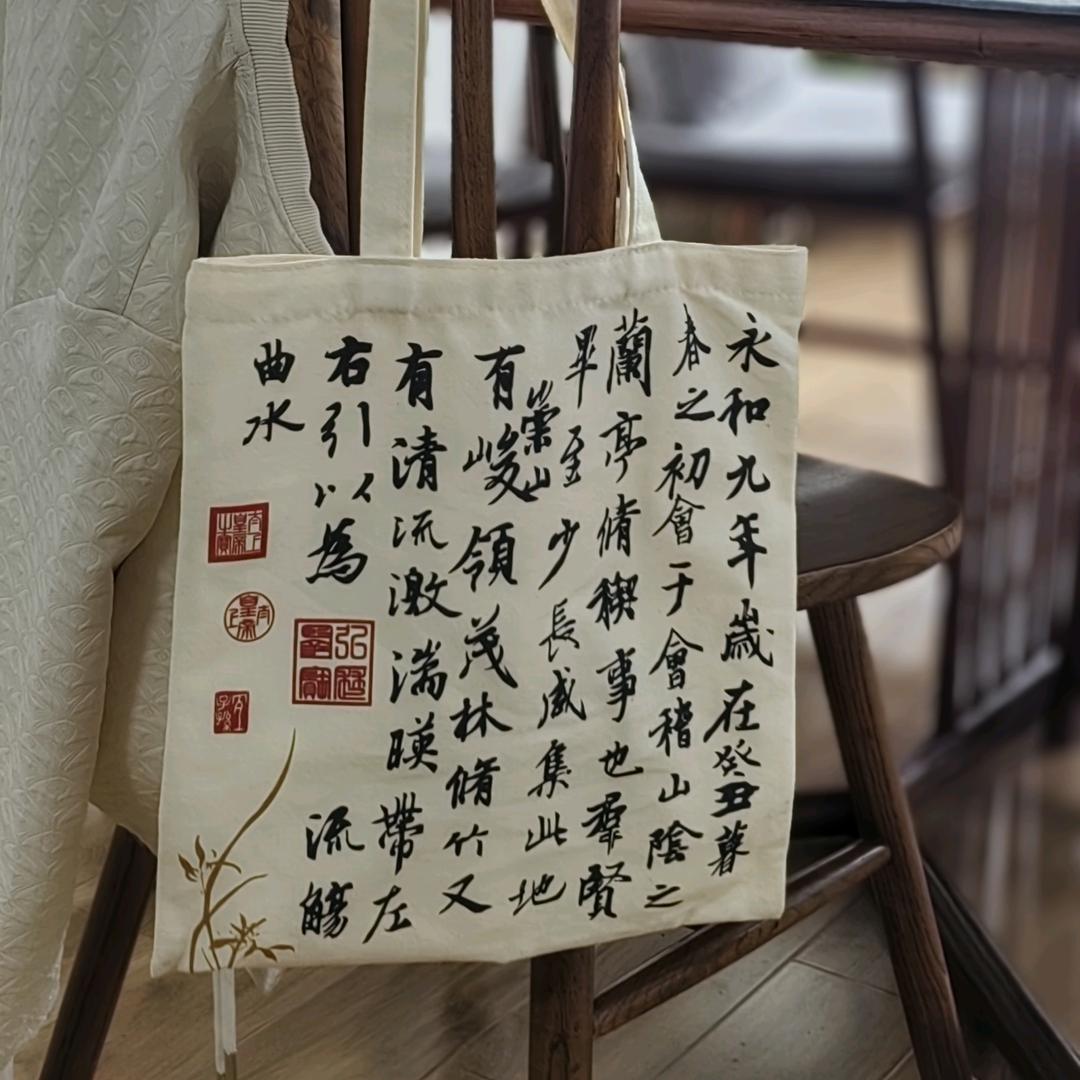 永和九年歲在癸丑暮
春之初會于會稽山陰之
蘭亭脩稧事也羣賢
畢至少長咸集此地
有崇山峻領茂林脩竹又
有清流激湍暎帶左
右引以為流觴
曲水